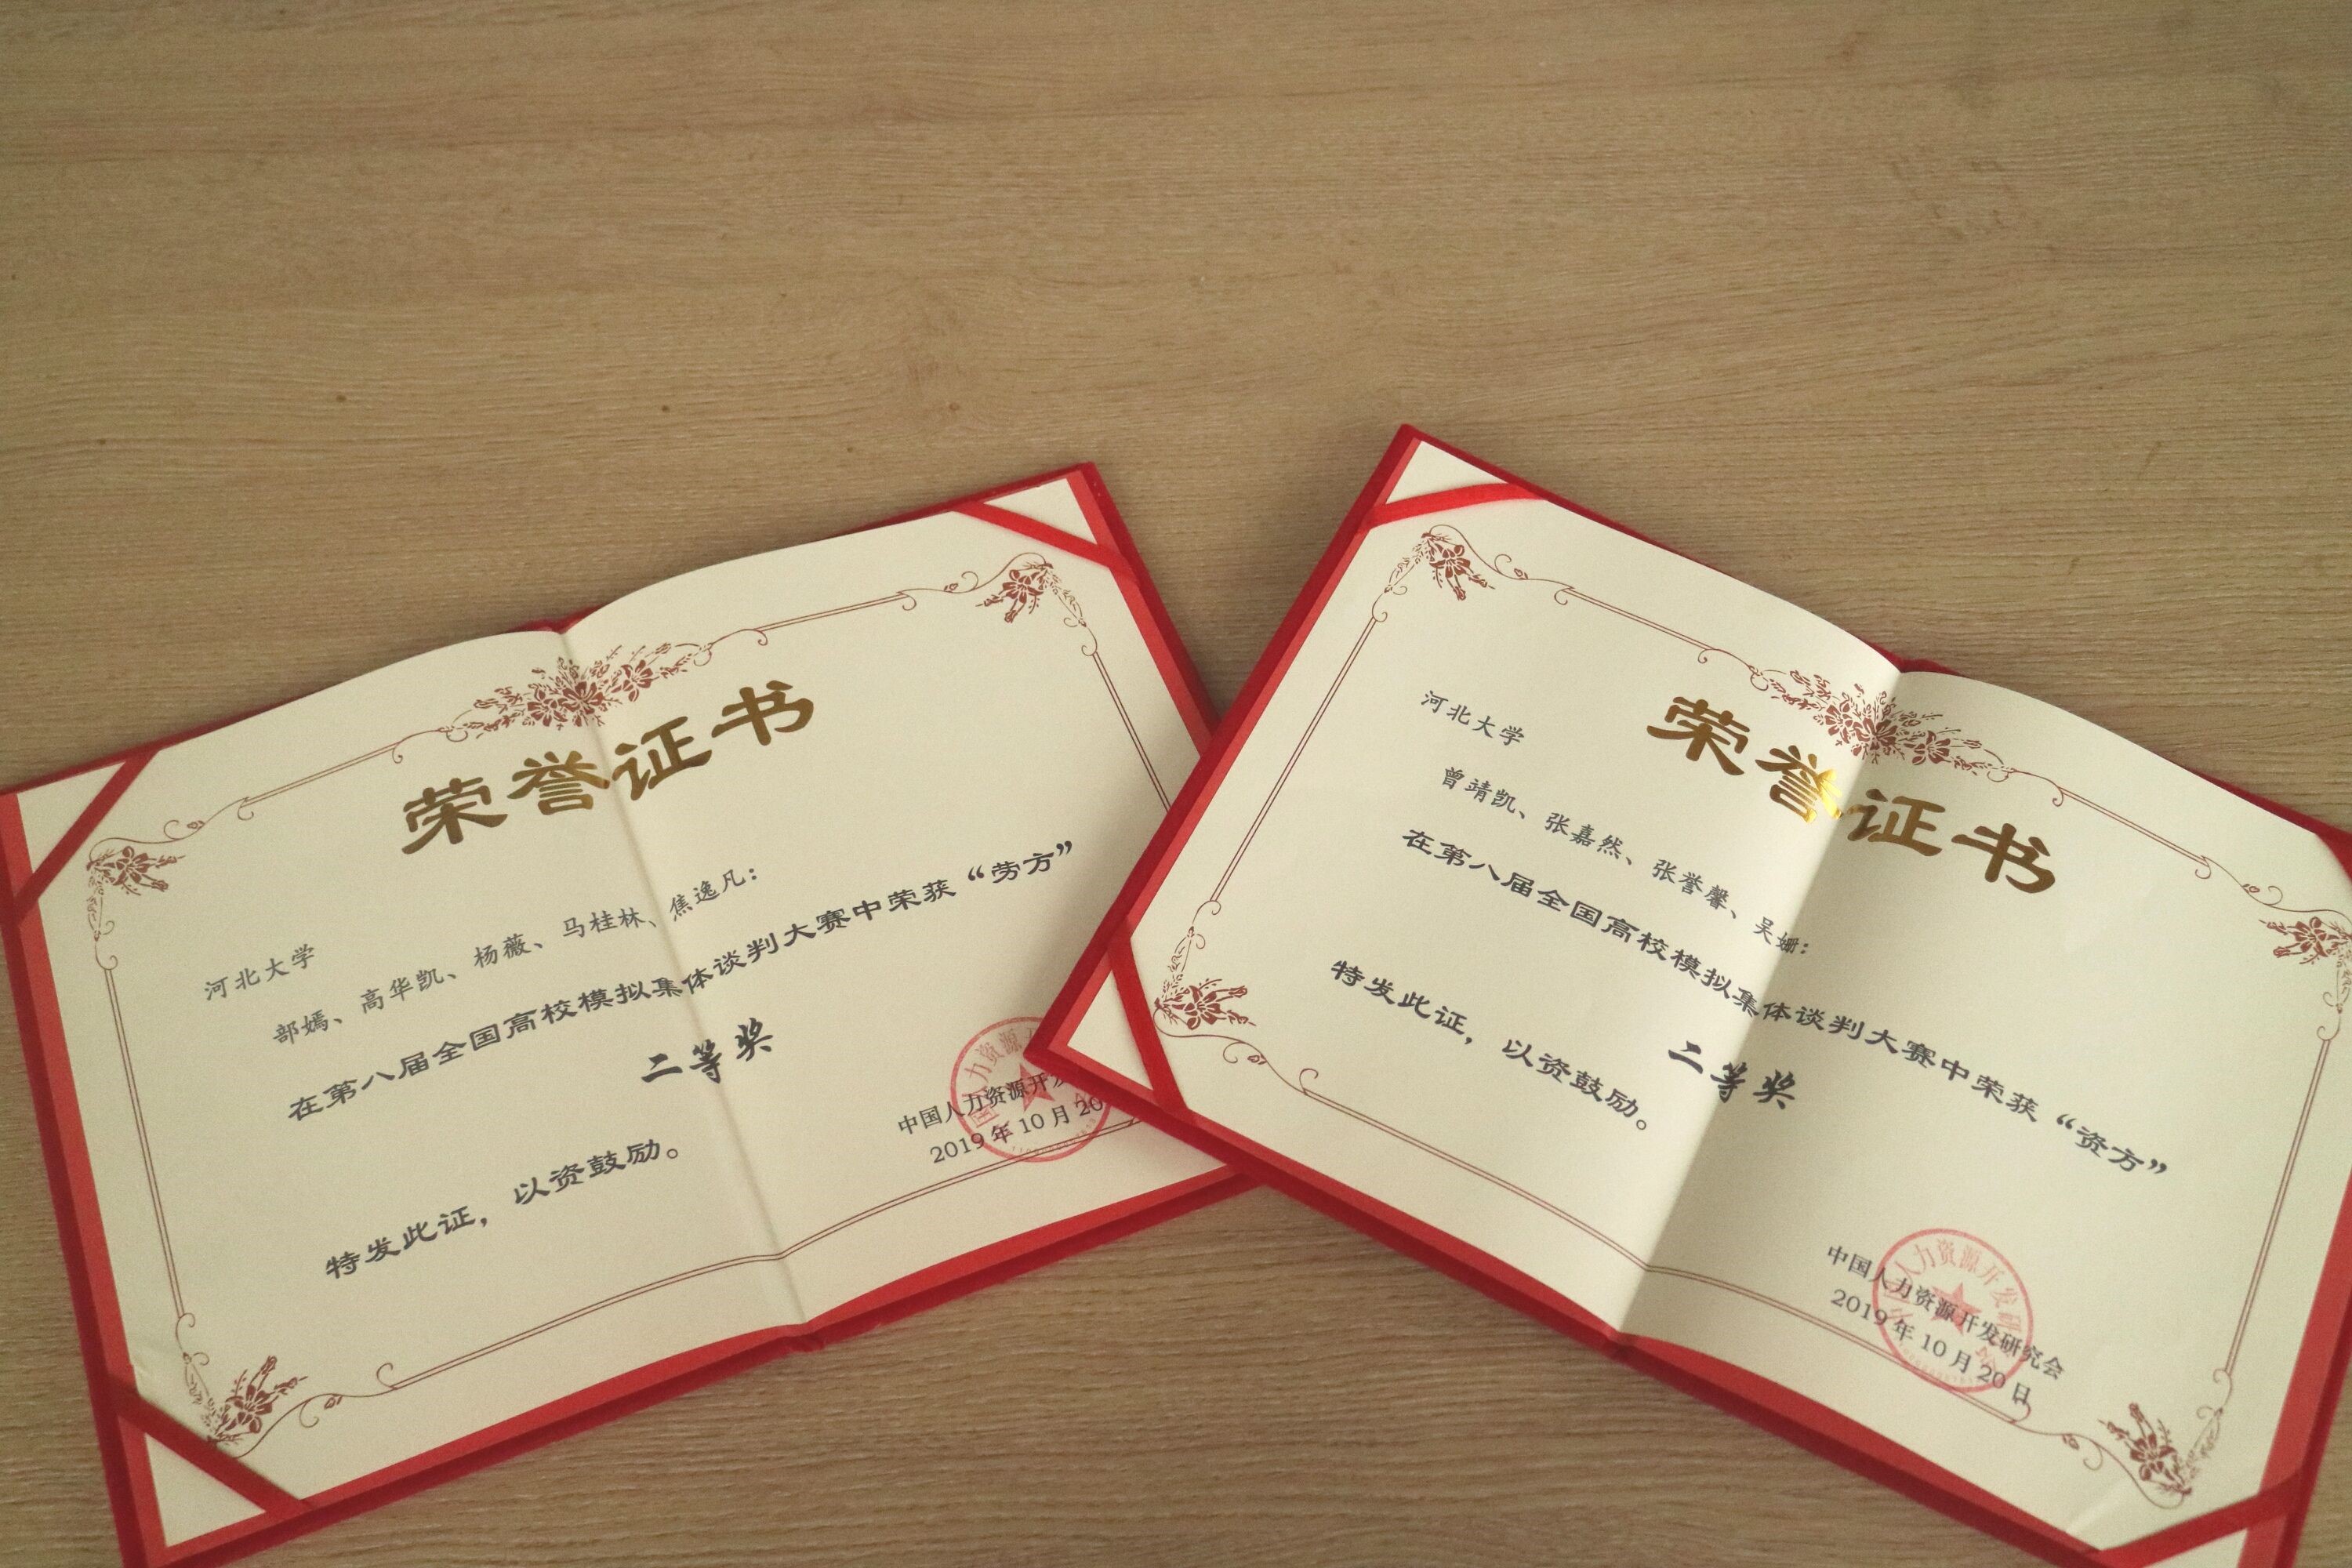 荣誉证书
河北大学
部嫣、高华凯、杨薇、马桂林、焦逸凡：
在第八届全国高校模拟集体谈判大赛中荣获“劳方”
二等奖
特发此证，以资鼓励。
中国人力资源开发
2019 年 10 月 20
荣誉证书
河北大学
曾靖凯、张嘉然、张誉馨、吴姗：
在第八届全国高校模拟集体谈判大赛中荣获“资方”
二等奖
特发此证，以资鼓励。
中国人力资源开发研究会
2019 年 10 月 20 日